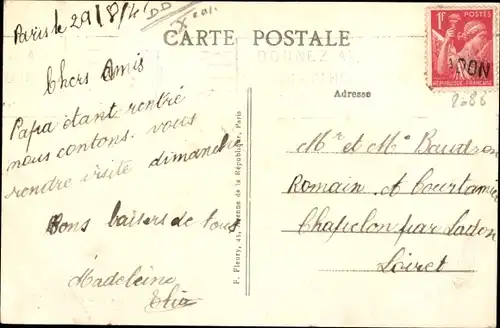 Paris le 29/8/41
CARTE POSTALE
Chers Amis
Papa étant rentré
nous contons vous
rendre visite dimanche
Bons baisers de tous
Madeleine
F. Fleury, 41, Avenue de la République, Paris
1F POSTES
RÉPUBLIQUE FRANÇAISE
Adresse
Mr et Me Baudron
Romain et Courtamie
Chapelon par Ladon
Loiret